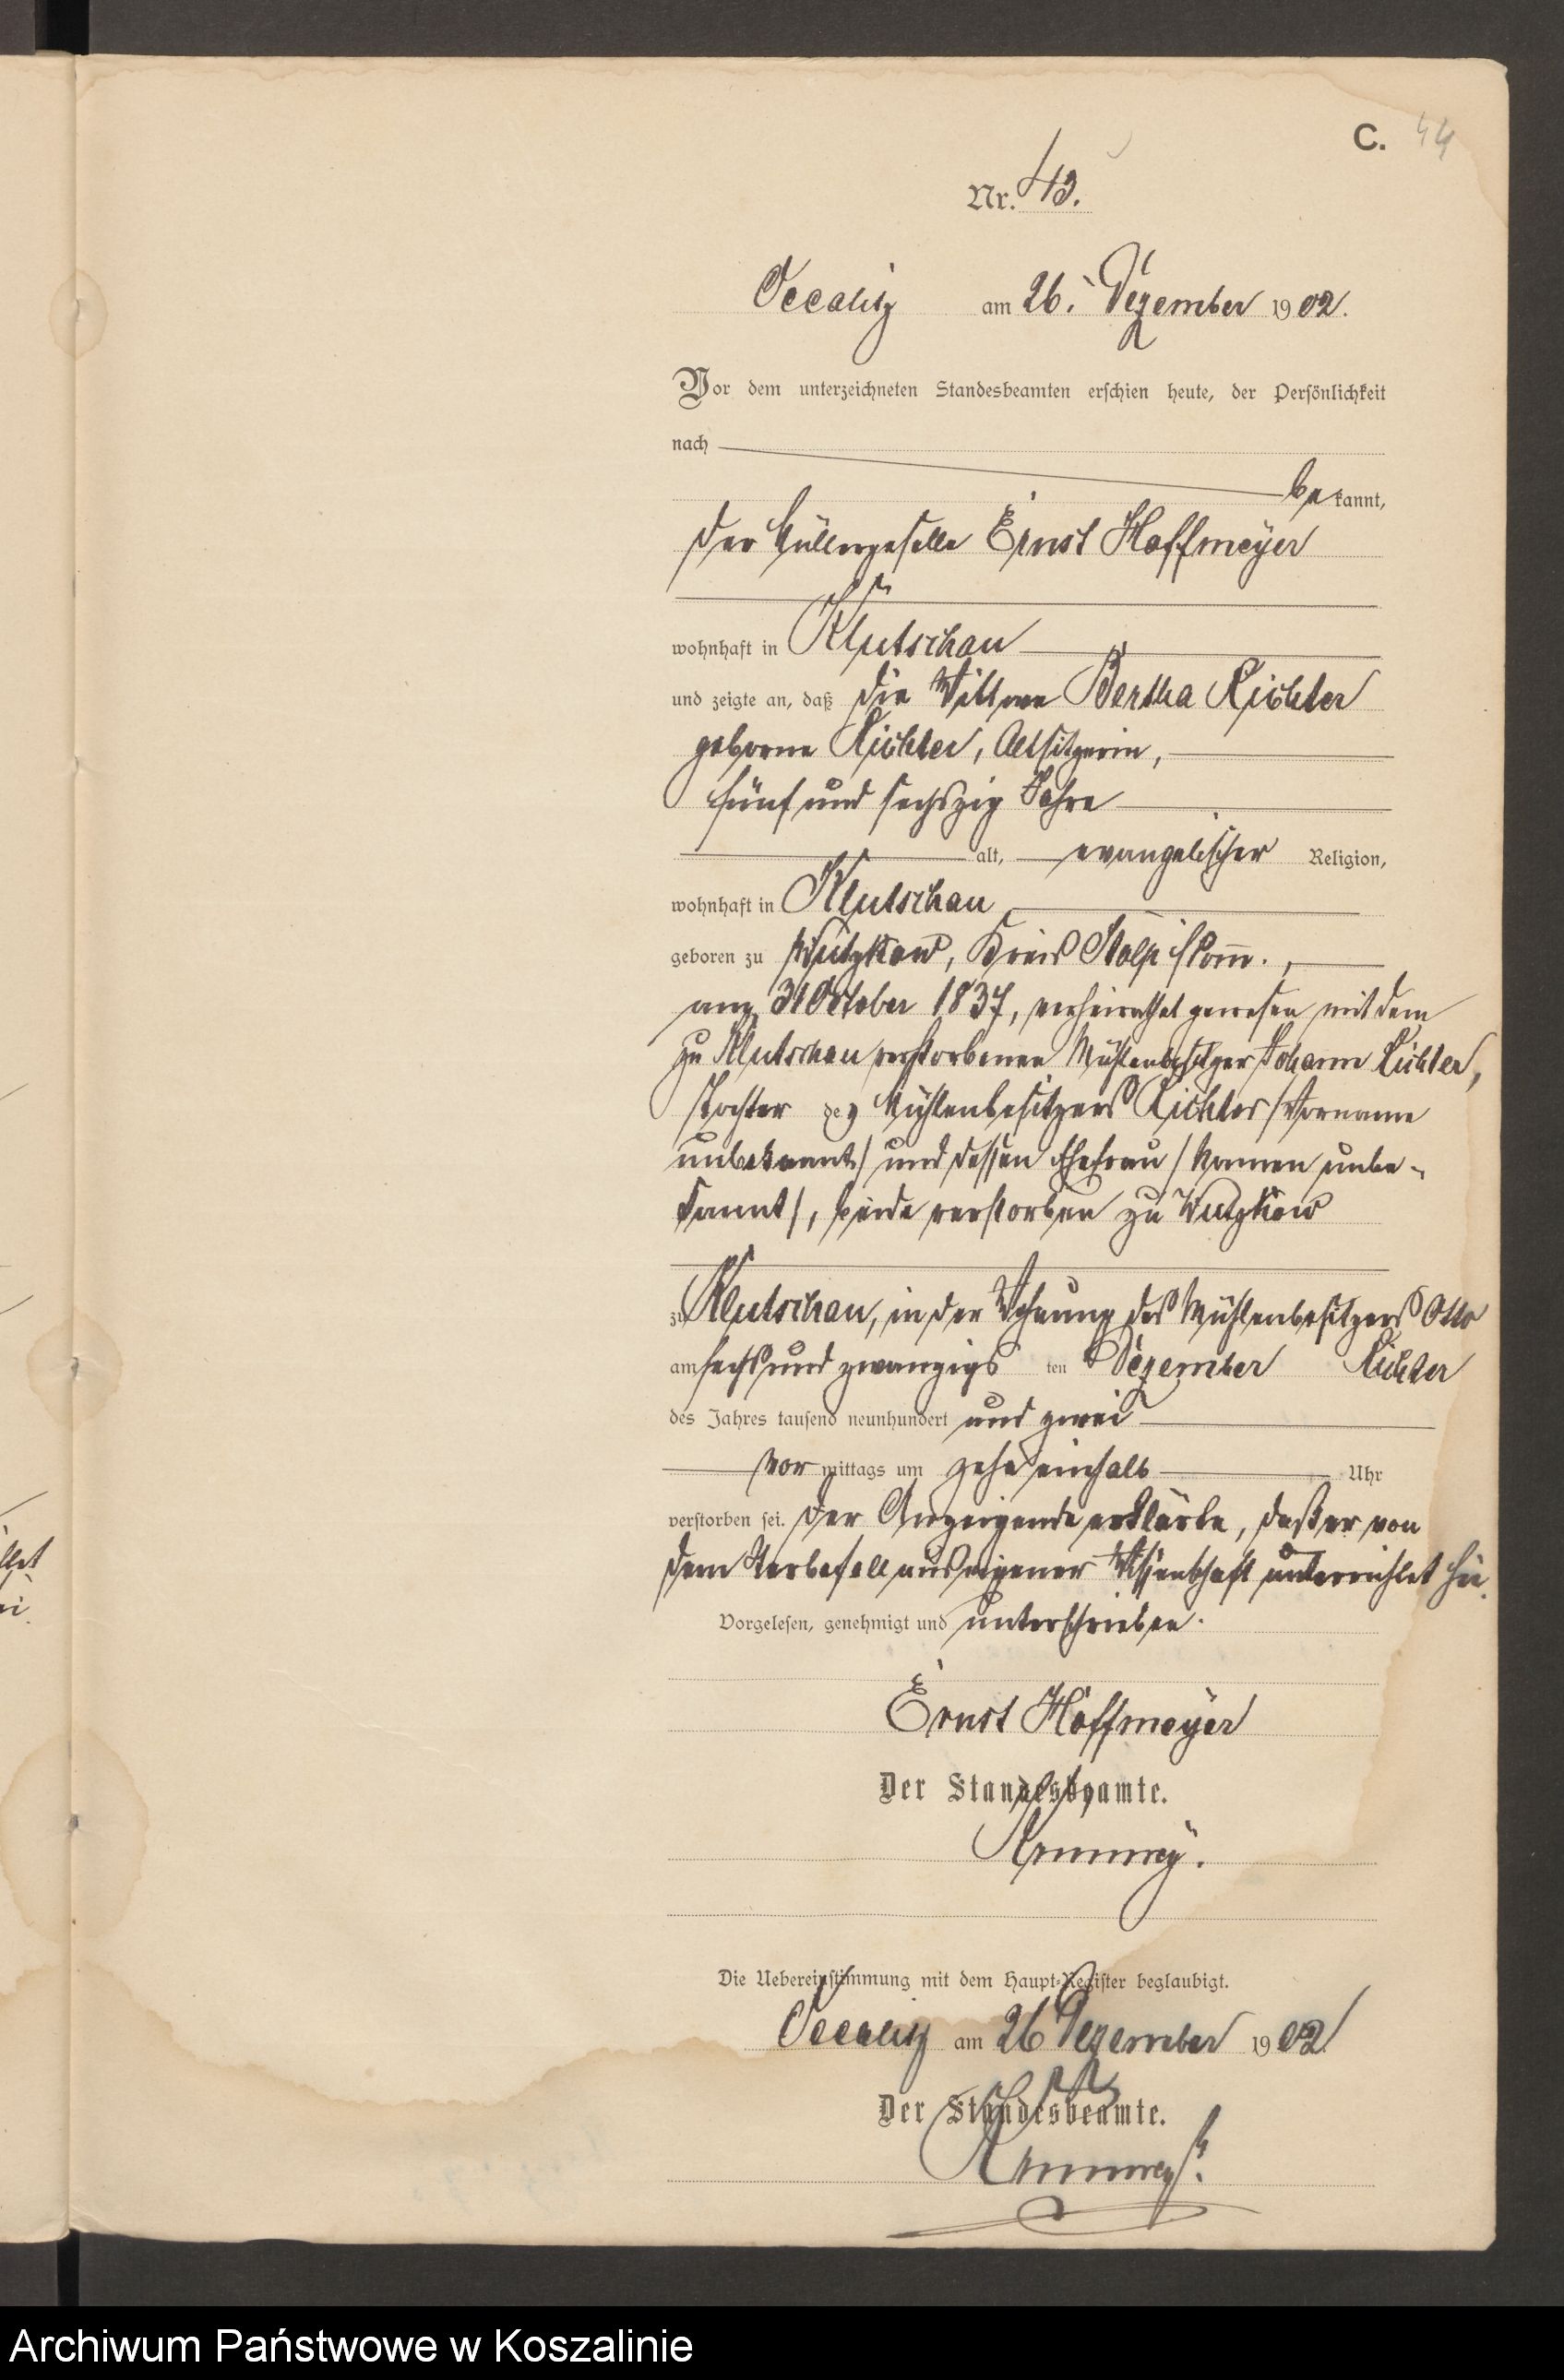 C. 44
Nr. 43.
Occalitz am 26. Dezember 1902.
Vor dem unterzeichneten Standesbeamten erschien heute, der Persönlichkeit
nach
be kannt,
der Müllergeselle Ernst Hoffmeyer
wohnhaft in Klutschau
und zeigte an, daß die Wittwe Bertha Richter
geborne Richter, Altsitzerin,
fünf und sechszig Jahre
alt, evangelischer Religion,
wohnhaft in Klutschau
geboren zu Wutzkow, Kreis Stolp i/Pom.,
am 31 October 1837, verheirathet gewesen mit dem
zu Klutschau verstorbenen Mühlenbesitzer Johann Richter,
Tochter des Mühlenbesitzers Richter /Vorname
unbekannt/ und dessen Ehefrau /Namen unbe-
kannt/, beide verstorben zu Wutzkow
zu Klutschau, in der Wohnung des Mühlenbesitzers Otto
am sechs und zwanzigs ten Dezember Richter
des Jahres tausend neunhundert und zwei
vor mittags um zehn einhalb Uhr
verstorben sei. Der Anzeigende erklärte, daß er von
dem Sterbefall aus eigener Wissenschaft unterrichtet sei.
Vorgelesen, genehmigt und unterschrieben.
Ernst Hoffmeyer
Der Standesbeamte.
Die Uebereinstimmung mit dem Haupt-Register beglaubigt.
Occalitz am 26 Dezember 1902
Der Standesbeamte.
Archiwum Państwowe w Koszalinie